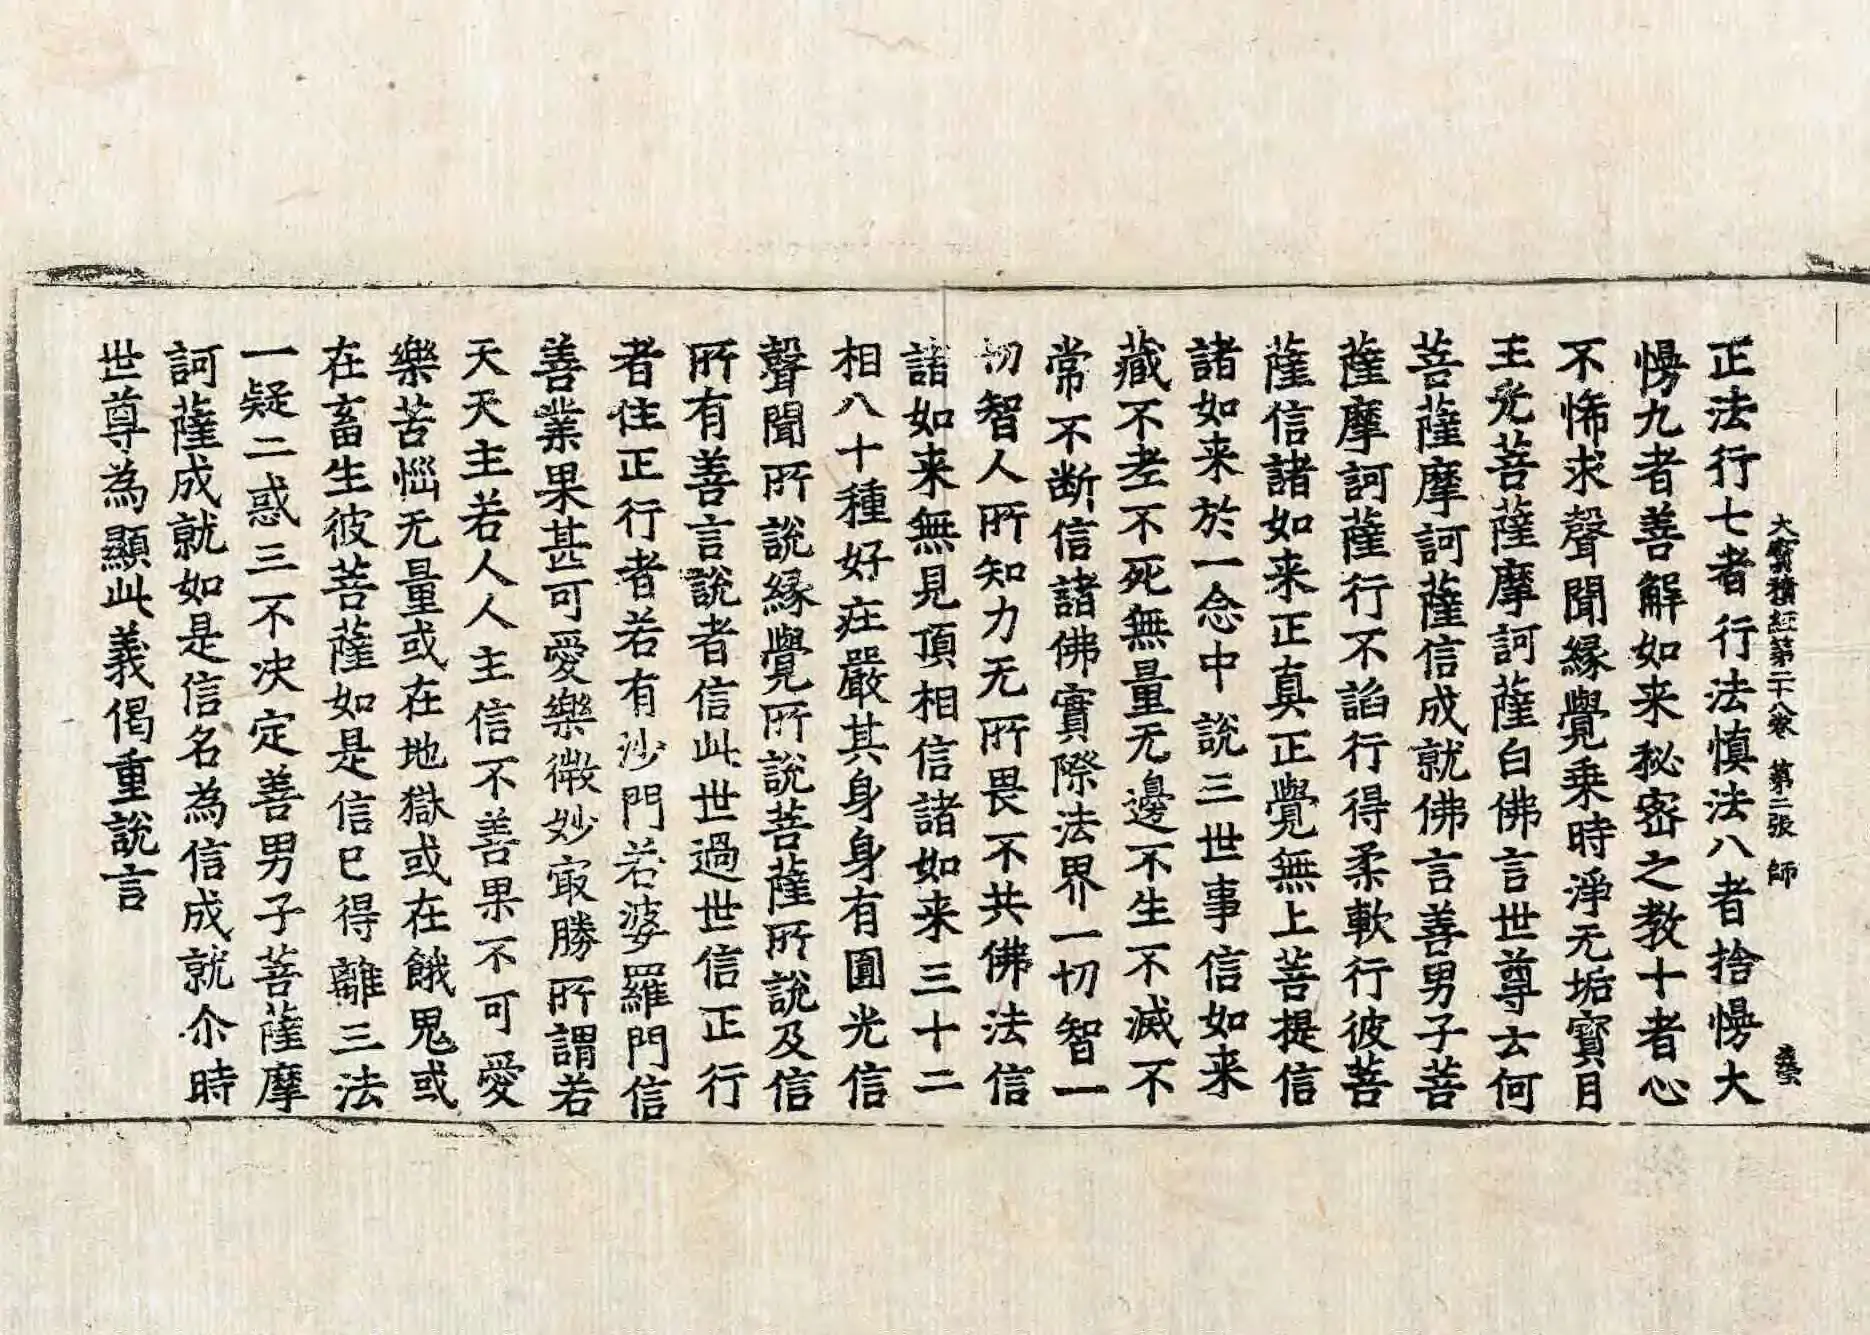 大寳積經第二十八卷 第二張 師
正法行七者行法慎法八者捨慢大
慢九者善解如来秘密之教十者心
不怖求聲聞緣覺乗時淨无垢寳月
王光菩薩摩訶薩白佛言世尊云何
菩薩摩訶薩信成就佛言善男子菩
薩摩訶薩行不諂行得柔軟行彼菩
薩信諸如来正真正覺無上菩提信
諸如来於一念中說三世事信如来
藏不老不死無量无邊不生不滅不
常不断信諸佛實際法界一切智一
切智人所知力无所畏不共佛法信
諸如来無見頂相信諸如来三十二
相八十種好庄嚴其身身有圓光信
聲聞所說緣覺所說菩薩所說及信
所有善言說者信此世過世信正行
者住正行者若有沙門若婆羅門信
善業果甚可愛樂微妙㝡勝所謂若
天天主若人人主信不善果不可愛
樂苦惱无量或在地獄或在餓鬼或
在畜生彼菩薩如是信已得離三法
一疑二惑三不決定善男子菩薩摩
訶薩成就如是信名為信成就尒時
世尊為顯此義偈重說言